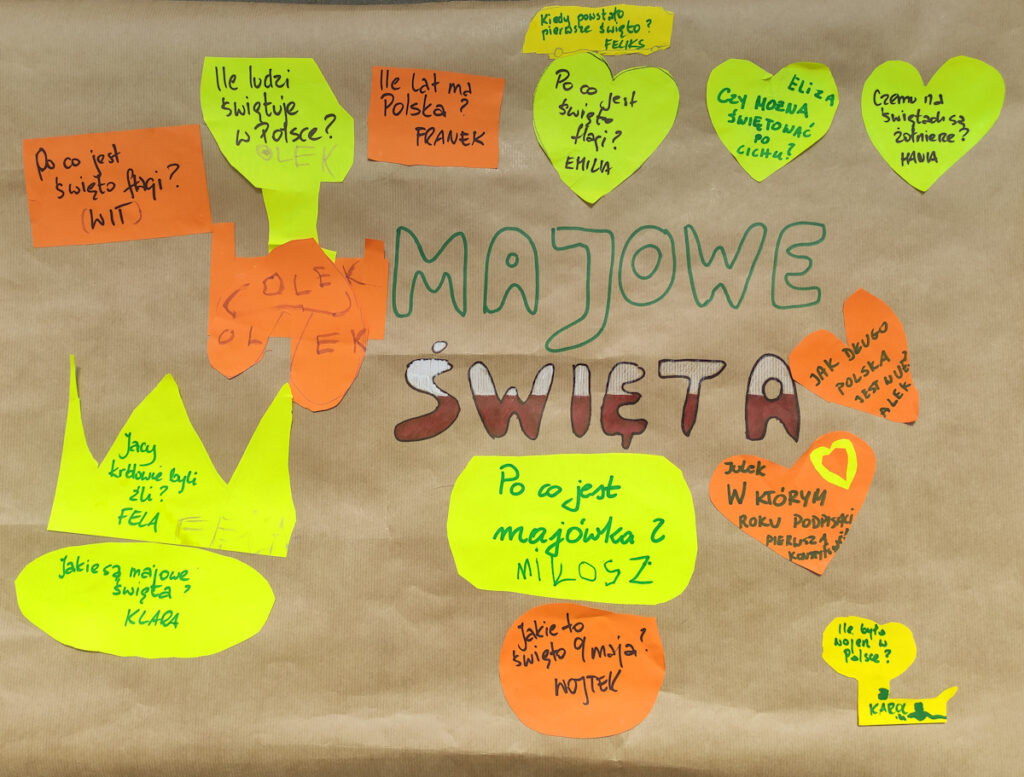 Kiedy powstało
pierwsze święto?
FELIKS
Ile ludzi
świętuje
w Polsce?
OLEK
Ile lat ma
Polska?
FRANEK
Po co jest
święto
flagi?
EMILIA
ELIZA
CZY MOŻNA
ŚWIĘTOWAĆ
PO
CICHU?
Czemu na
świętach są
żołnierze?
HANIA
Po co jest
święto flagi?
(WIT)
OLEK
OLEK
MAJOWE
ŚWIĘTA
JAK DŁUGO
POLSKA
JEST NUE?
ALEK
Jacy
królowie byli
źli?
FELA
FELA
Po co jest
majówka?
MIŁOSZ
Julek
W KTÓRYM
ROKU PODPISALI
PIERWSZĄ
Jakie są majowe
święta?
KLARA
Jakie to
święto 9 maja?
WOJTEK
Ile było
wojen w
Polsce?
KAROL